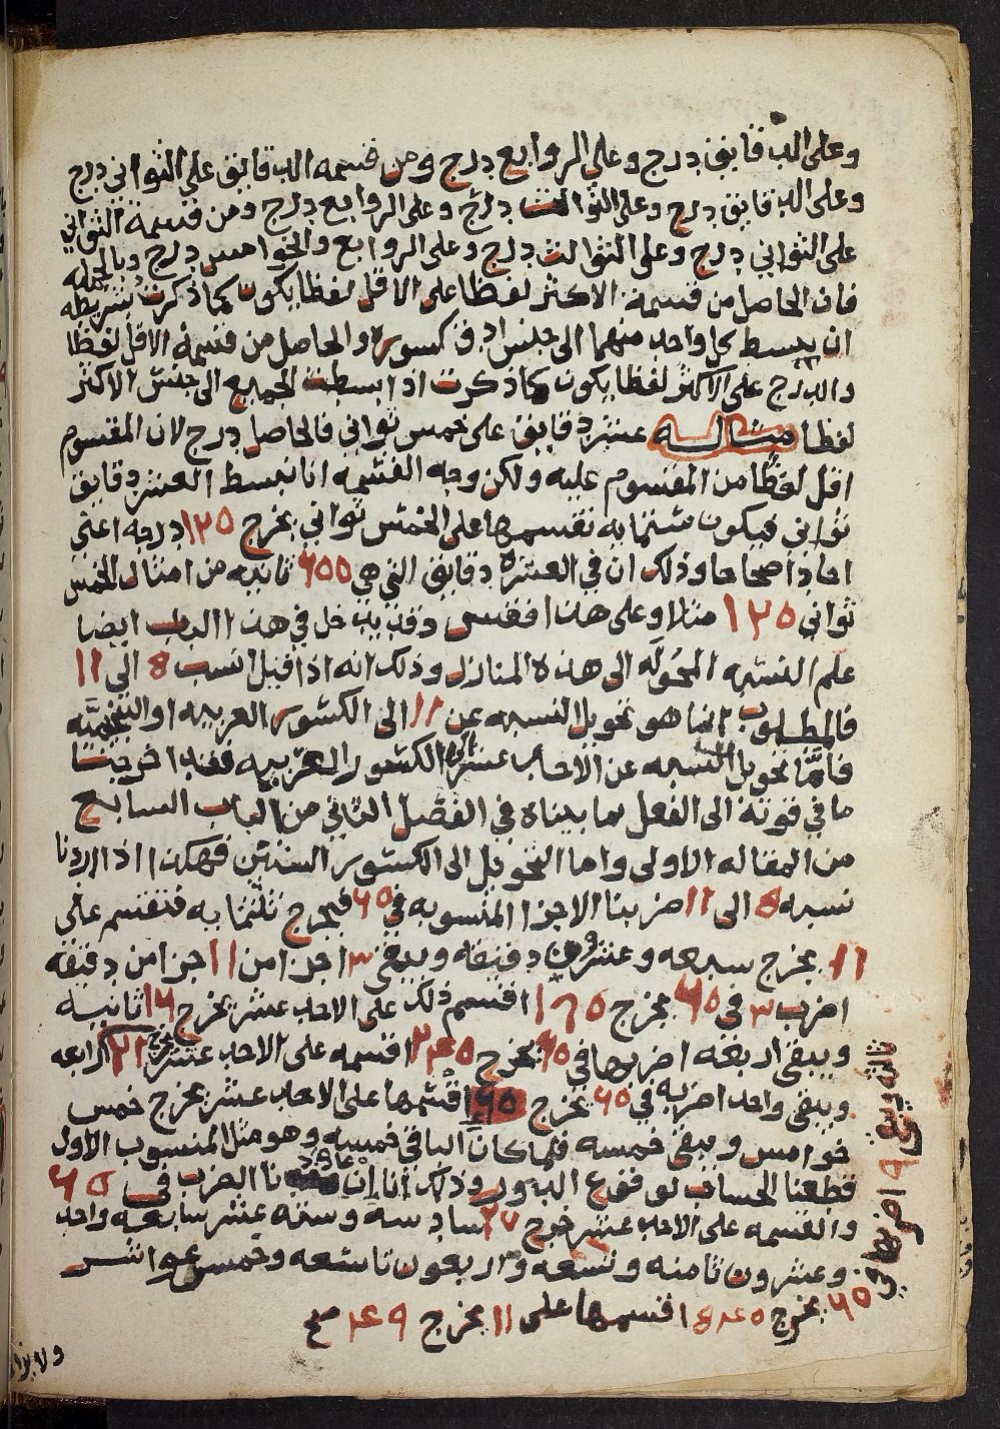 وعلى الدقايق درج وعلى الروابع درج ومن قسمه الدقايق على الثواني درج
وعلى الدقايق درج وعلى الثوالث درج وعلى الروابع درج ومن قسمة الثواني
على الثواني درج وعلى الثوالث درج وعلى الروابع والخوامس درج وبالجمله
فان الحاصل من قسمة الاكثر لفظا على الاقل لفظا يكون كما ذكرت بشريطه
ان يبسط كل واحد منهما الى جنس ادق كسوره والحاصل من قسمة الاقل لفظا
والدرج على الاكثر لفظا يكون كما ذكرت اذا بسطت الجميع الى جنس الاكثر
لفظا مثاله عشر دقايق على خمس ثواني فالحاصل درج لان المقسوم
اقل لفظا من المقسوم عليه ولكن وجه القسمه انا نبسط العشر دقايق
ثواني فيكون ستمايه نقسمها على الخمس ثواني يخرج ١٢٥ درجه اعني
احادا صحاحا وذلك ان في العشره دقايق التي هي ٦٥٥ ثانيه من امثال الخمس
ثواني ١٢٥ مثلا وعلى هذا فقس وقد يدخل في هذا الباب ايضا
علم النسبه المحوله الى هذه المنازل وذلك انه اذا قيل انسب 8 الى ١١
فالمطلوب انما هو تحويل النسبه عن ١١ الى الكسور العربيه او النجميه
فاما تحويل النسبه عن الاحد عشر الى الكسور العربيه فقد اخرجنا
ما في قوته الى الفعل بما بيناه في الفصل الثاني من الباب السابع
من المقاله الاولى واما التحويل الى الكسور الستين فهكذا اذا اردنا
نسبه 8 الى ١١ ضربنا الاجزا المنسوبه في ٦٥ فيخرج ثلثمايه فنقسم على
١١ يخرج سبعه وعشرون دقيقه ويبقى ٣ اجزا من ١١ جزا من دقيقه
اضرب ٣ في ٦٥ يخرج ١٨٥ اقسم ذلك على الاحد عشر يخرج ١٦ ثانيه
ويبقى اربعه اضربها في ٦٥ يخرج ٢٤٥ اقسمه على الاحد عشر يخرج ٢١ رابعه
ويبقى واحد اضربه في ٦٥ يخرج ٦٥ اقسمها على الاحد عشر يخرج خمس
خوامس ويبقى خمسه فلما كان الباقي خمسه وهو مثل المنسوب الاول
قطعنا الحساب لوقوع الدور وذلك انا ان عاودنا الضرب في ٦٥
والقسمه على الاحد عشر خرج ٢٧ سادسه وسته عشر سابعه واحد
وعشرون ثامنه وتسعه واربعون تاسعه وخمس عواشر
ثالثه ويبقى ٩ اضربها في
٦٥ يخرج 8٤٥ اقسمها على ١١ يخرج ٤٩ صح